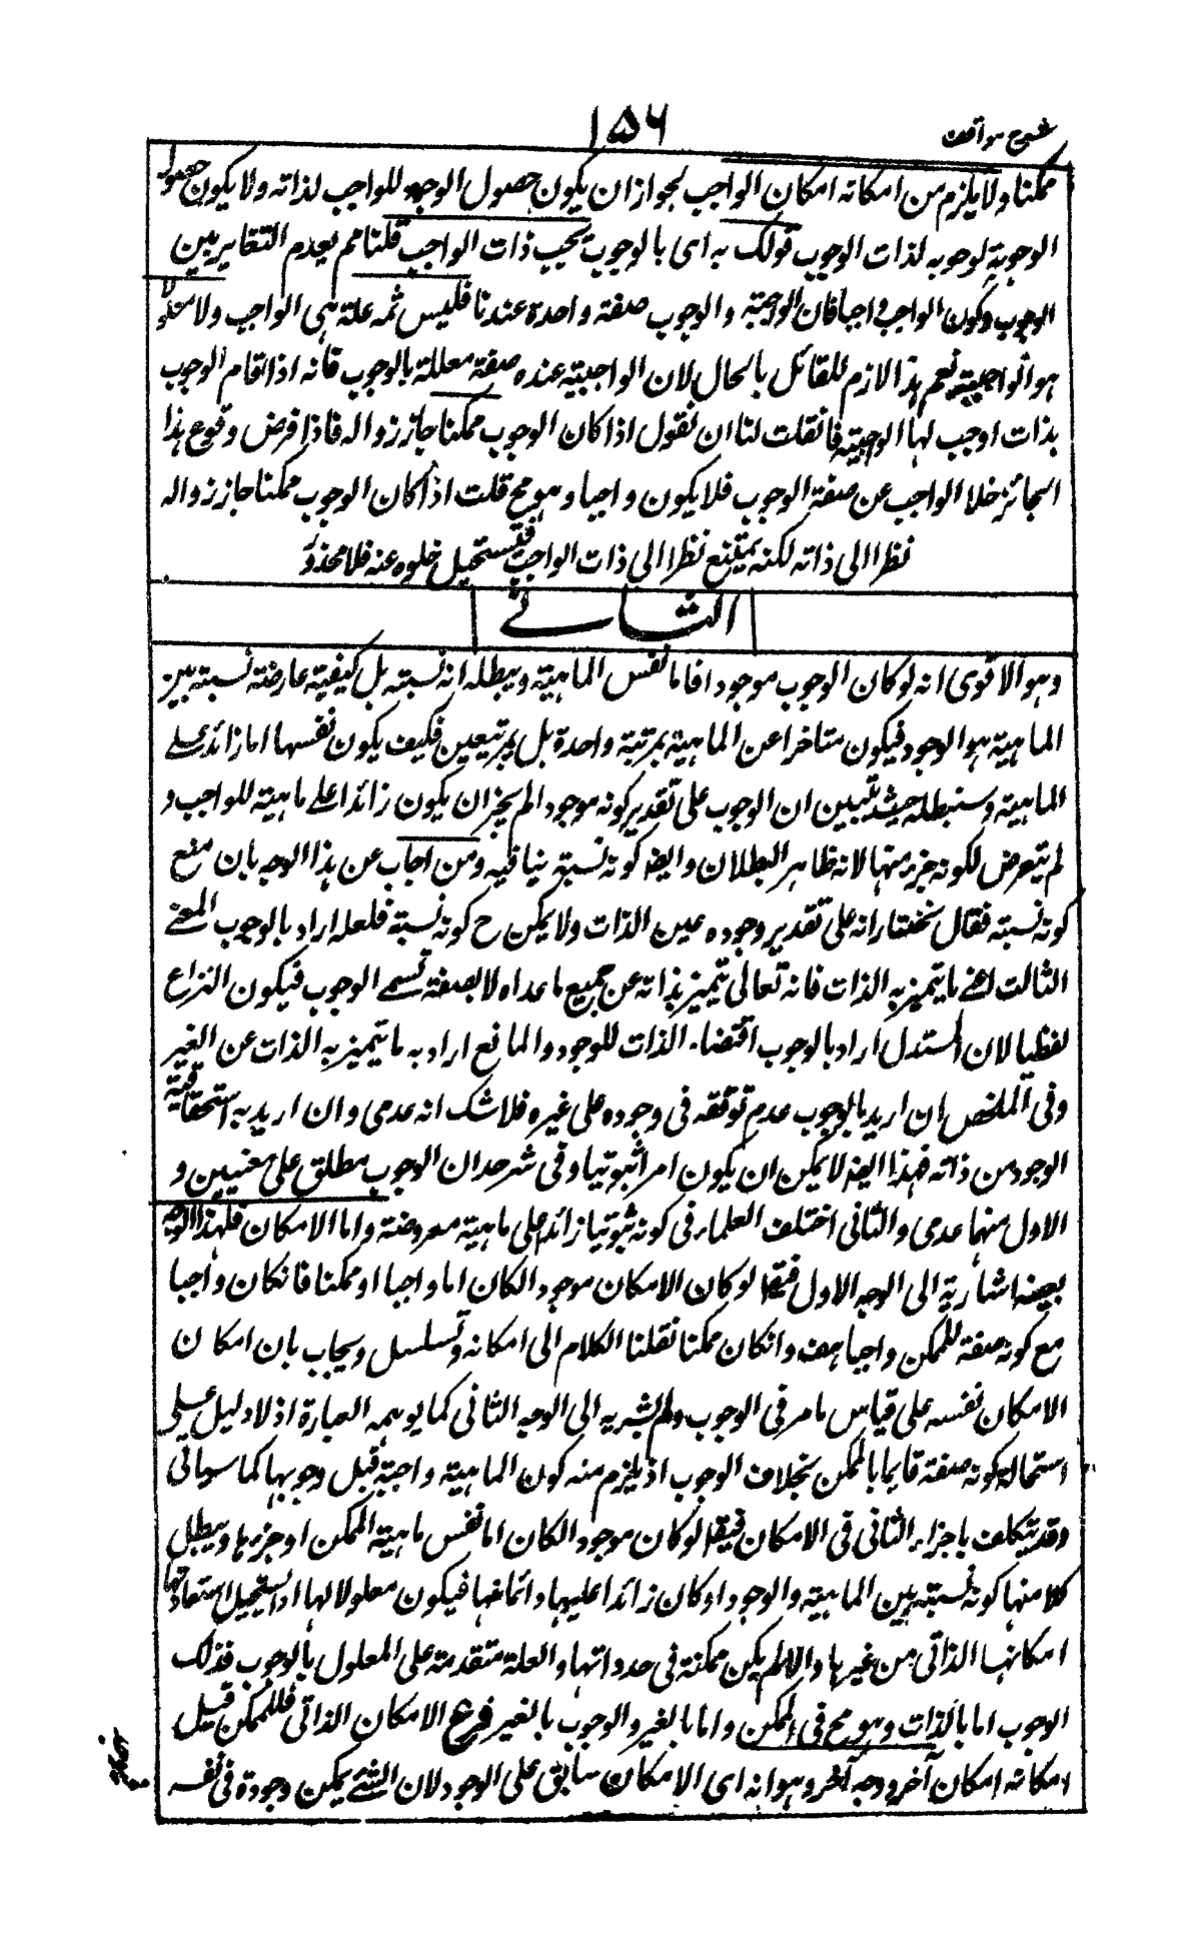 شرح مواقف
۱۵۶
ممكنا ولا يلزم من امكانه امكان الواجب لجواز ان يكون حصول الوجوب للواجب لذاته ولا يكون حصول
الوجوبية لوجوبه لذات الوجوب قولك به اى بالوجوب يجب ذات الواجب قلنا مم بعدم التغاير بين
الوجوب وكون الواجب واجبا فان الواجبية والوجوب صفة واحدة عندنا فليس ثمه علة هى الواجب ولا معلول
هو الواجبية نعم هذا لازم للقائل بالحال لان الواجبية عنده صفة معللة بالوجوب فانه اذا قام الوجوب
بذات اوجب لها الواجبية فانقلت لنا ان نقول اذا كان الوجوب ممكنا جاز زواله فاذا فرض وقوع هذا
الجائز خلا الواجب عن صفة الوجوب فلا يكون واجبا وهو مح قلت اذا كان الوجوب ممكنا جاز زواله
نظرا الى ذاته لكنه يمتنع نظرا الى ذات الواجب فيستحيل خلوه عنه فلا محذور
الثانے
وهو الاقوى انه لو كان الوجوب موجودا فاما نفس الماهية ويبطله انه نسبته بل كيفية عارضة نسبته بين
الماهية هو الوجود فيكون متاخرا عن الماهية بمرتبة واحدة بل بمرتبتين فكيف يكون نفسها اما زائد علے
الماهية وسنبطله حيث تبين ان الوجوب على تقدير كونه موجودا لم يجز ان يكون زائدا علے ماهية للواجب و
لم يتعرض لكونه جزء منها لانه ظاهر البطلان وايضا كونه نسبة ينافيه ومن اجاب عن هذا الوجه بان منع
كونه نسبته فقال نختار انه على تقدير وجوده عين الذات ولا يمكن ح كونه نسبة فلعله اراد بالوجوب المعنے
الثالث اعنے ما يتميز به الذات فانه تعالى يتميز بذاته عن جميع ما عداه لا بصفة تسمے الوجوب فيكون النزاع
لفظيا لان المستدل اراد بالوجوب اقتضاء الذات للوجود والمانع اراد به ما يتميز به الذات عن الغير
وفى الملخص ان اريد بالوجوب عدم توقفه فى وجوده على غيره فلا شك انه عدمى وان اريد به استحقاقية
الوجود من ذاته فهذا ايضا لا يمكن ان يكون امرا ثبوتيا وفى شرحه ان الوجوب مطلق على معنيين و
الاول منهما عدمى والثانى اختلف العلماء فى كونه ثبوتيا زائد على ماهية معروضة واما الامكان فلهذا الوجه
بعينه اشار به الى الوجه الاول فيقا لو كان الامكان موجود الكان اما واجبا او ممكنا فانكان واجبا
مع كونه صفة للممكن واجبا هف وانكان ممكنا نقلنا الكلام الى امكانه وتسلسل ويجاب بان امكان
الامكان نفسه على قياس ما مر فى الوجوب ولم يشر به الى الوجه الثانى كما يوهمه العبارة اذ لا دليل على
استحالة كونه صفة قايما بالممكن بخلاف الوجوب اذ يلزم منه كون الماهية واجبة قبل وجوبها كما سياتى
وقد يتكلف باجراء الثانى فى الامكان فيقا لو كان موجود الكان اما نفس ماهية الممكن او جزءها ويبطل
كلا منها كونه نسبته بين الماهية والوجود او كان زائدا عليها وقائما بها فيكون معلولا لها اذ يستحيل استفادتها
امكانها الذاتى من غيرها والا لم يكن ممكنة فى حد ذاتها والعلة متقدمة على المعلول بالوجوب فذلك
الوجوب اما بالذات وهو مح فى الممكن واما بالغير والوجوب بالغير فرع الامكان الذاتى فللممكن قبل
امكانه امكان آخر ووجه آخر وهو انه اى الامكان سابق على الوجود لان الشئے يمكن وجودة فى نفسه